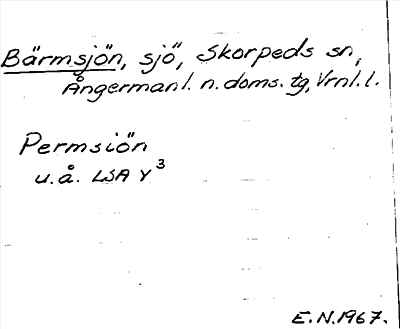 Bärmsjön, sjö, Skorpeds sn,
Ångermanl. n. doms. tg, Vrnl. l.
Permsiön
u.å. LSA Y³
E.N.1967.